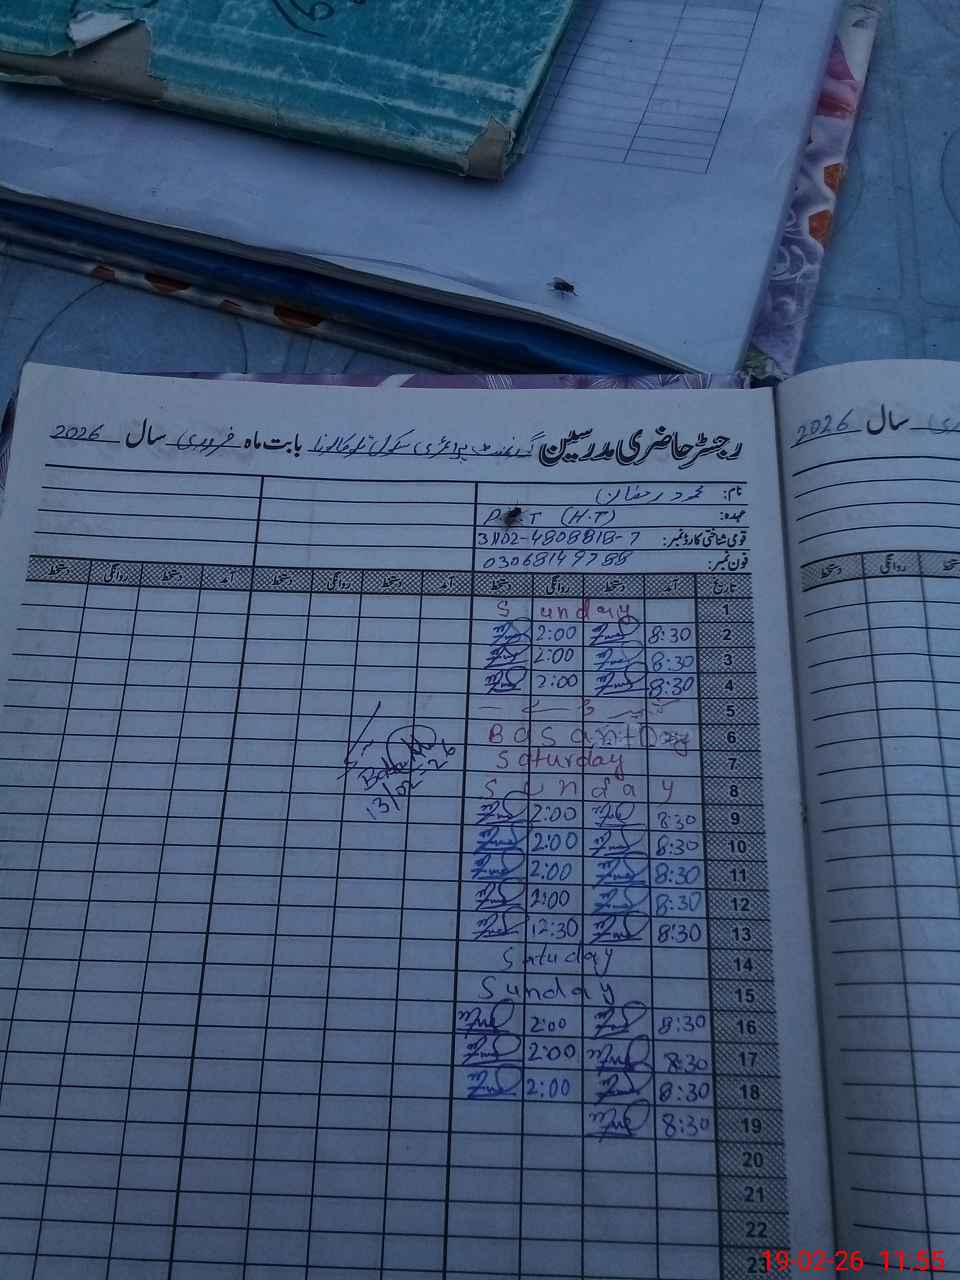 رجسٹر حاضری مدرسین گورنمنٹ پرائمری سکول بابت ماہ فروری سال 2026
سال 2026
نام: محمود رمضان
عہدہ: P T (H.T)
قومی شناختی کارڈ نمبر: 31102-4808818-7
فون نمبر: 03068149788
تاریخ آمد دستخط روانگی دستخط آمد دستخط روانگی دستخط آمد دستخط روانگی دستخط
روانگی دستخط
1 Sunday
2 8:30 2:00
3 8:30 2:00
4 8:30 2:00
5
6 Basant Day
7 Saturday
8 Sunday
9 8:30 2:00
10 8:30 2:00
11 8:30 2:00
12 8:30 2:00
13 8:30 12:30
13/02-26
14 Satuday
15 Sunday
16 8:30 2:00
17 8:30 2:00
18 8:30 2:00
19 8:30
20
21
22
23
19-02-26 11:55